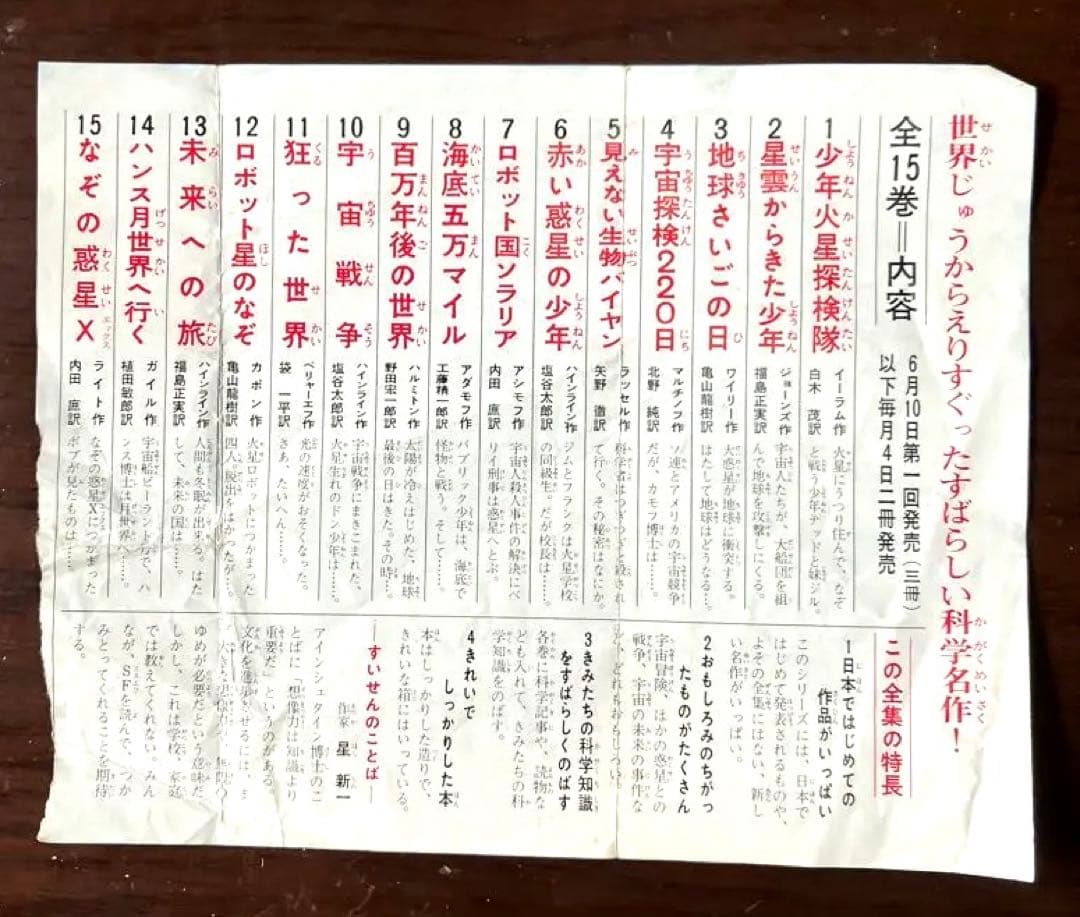 世界じゅうからえりすぐったすばらしい科学名作！
全15巻＝内容
6月10日第一回発売（三冊）
以下毎月4日二冊発売
1 少年火星探検隊
イーラム作
白木　茂訳
火星にうつり住んで、なぞ
と戦う少年テッドと妹ジル。
2 星雲からきた少年
ジョーンズ作
福島正実訳
宇宙人たちが、大船団を組
んで地球を攻撃しにくる。
3 地球さいごの日
ワイリー作
亀山龍樹訳
大惑星が地球に衝突する。
はたして地球はどうなる…。
4 宇宙探検220日
マルチノフ作
北野　純訳
ソ連とアメリカの宇宙競争
だが、カモフ博士は……。
5 見えない生物バイトン
ラッセル作
矢野　徹訳
科学者はつぎつぎと殺され
て行く。その秘密はなにか。
6 赤い惑星の少年
ハインライン作
塩谷太郎訳
ジムとフランクは火星学校
の同級生。だが校長は……。
7 ロボット国ソラリア
アシモフ作
内田　庶訳
宇宙人殺人事件の解決にベ
リイ刑事は惑星へとぶ。
8 海底五万マイル
アダモフ作
工藤精一郎訳
パブリック少年は、海底で
怪物と戦う。そして……。
9 百万年後の世界
ハルミトン作
野田宏一郎訳
太陽が冷えはじめた、地球
最後の日はきた。その時…。
10 宇宙戦争
ハインライン作
塩谷太郎訳
宇宙戦争にまきこまれた、
火星生れのドン少年は……。
11 狂った世界
ベリャーエフ作
袋　一平訳
光の速度がおそくなった。
さあ、たいへん……。
12 ロボット星のなぞ
カポン作
亀山龍樹訳
火星ロボットにつかまった
四人。脱出をはかったが…。
13 未来への旅
ハインライン作
福島正実訳
人間も冬眠が出来る。はた
して、未来の国は……。
14 ハンス月世界へ行く
ガイル作
植田敏郎訳
宇宙船ビーラント万で、ハ
ンス博士は月世界へ……。
15 なぞの惑星X
ライト作
内田　庶訳
なぞの惑星Xにつかまった
ボブが見たものは……。
この全集の特長
1 日本ではじめての
作品がいっぱい
このシリーズには、日本で
はじめて発表されるものや、
よその全集にはない、新し
い名作がいっぱい。
2 おもしろみのちがっ
たものがたくさん
宇宙冒険、ほかの惑星との
戦争、宇宙の未来の事件な
ど、どれもおもしろい。
3 きみたちの科学知識
をすばらしくのばす
各巻に科学記事や、読物な
ども入れて、きみたちの科
学知識をのばす。
4 きれいで
しっかりした本
本はしっかりした造りで、
きれいな箱にはいっている。
―すいせんのことば―
作家　星　新一
アインシュタイン博士のこ
とばに「想像力は知識より
重要だ」というのがある。
文化を進歩させるには、ま
ゆめが必要だという意味だ。
しかし、これは学校、家庭
では教えてくれない。みん
なが、SFを読んで、つか
みとってくれることを期待
する。